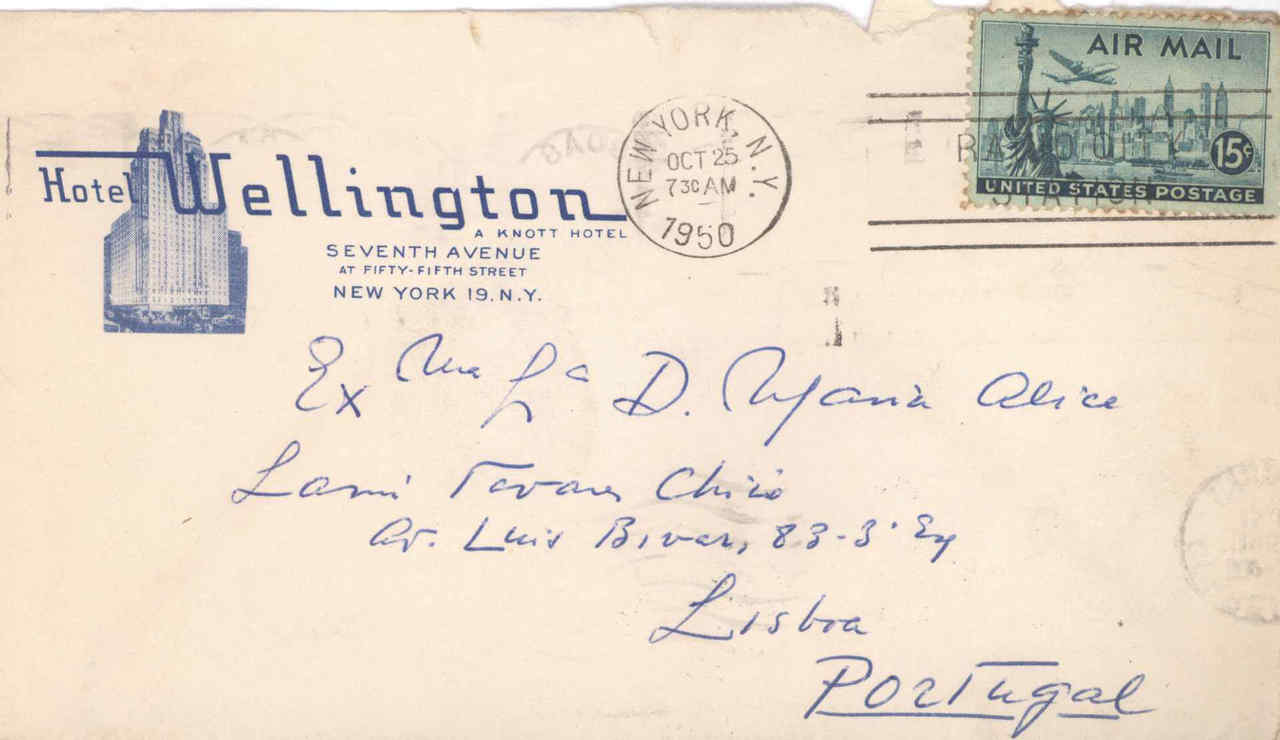 Hotel Wellington
A KNOTT HOTEL
SEVENTH AVENUE
AT FIFTY-FIFTH STREET
NEW YORK 19. N.Y.
NEW YORK, N.Y.
OCT 25
730 AM
1950
AIR MAIL
15¢
UNITED STATES POSTAGE
STATION
Ex ma Sra D. Maria Alice
Lami Tavares Chicó
Av. Luis Bivar, 83-3º Eq
Lisboa
Portugal